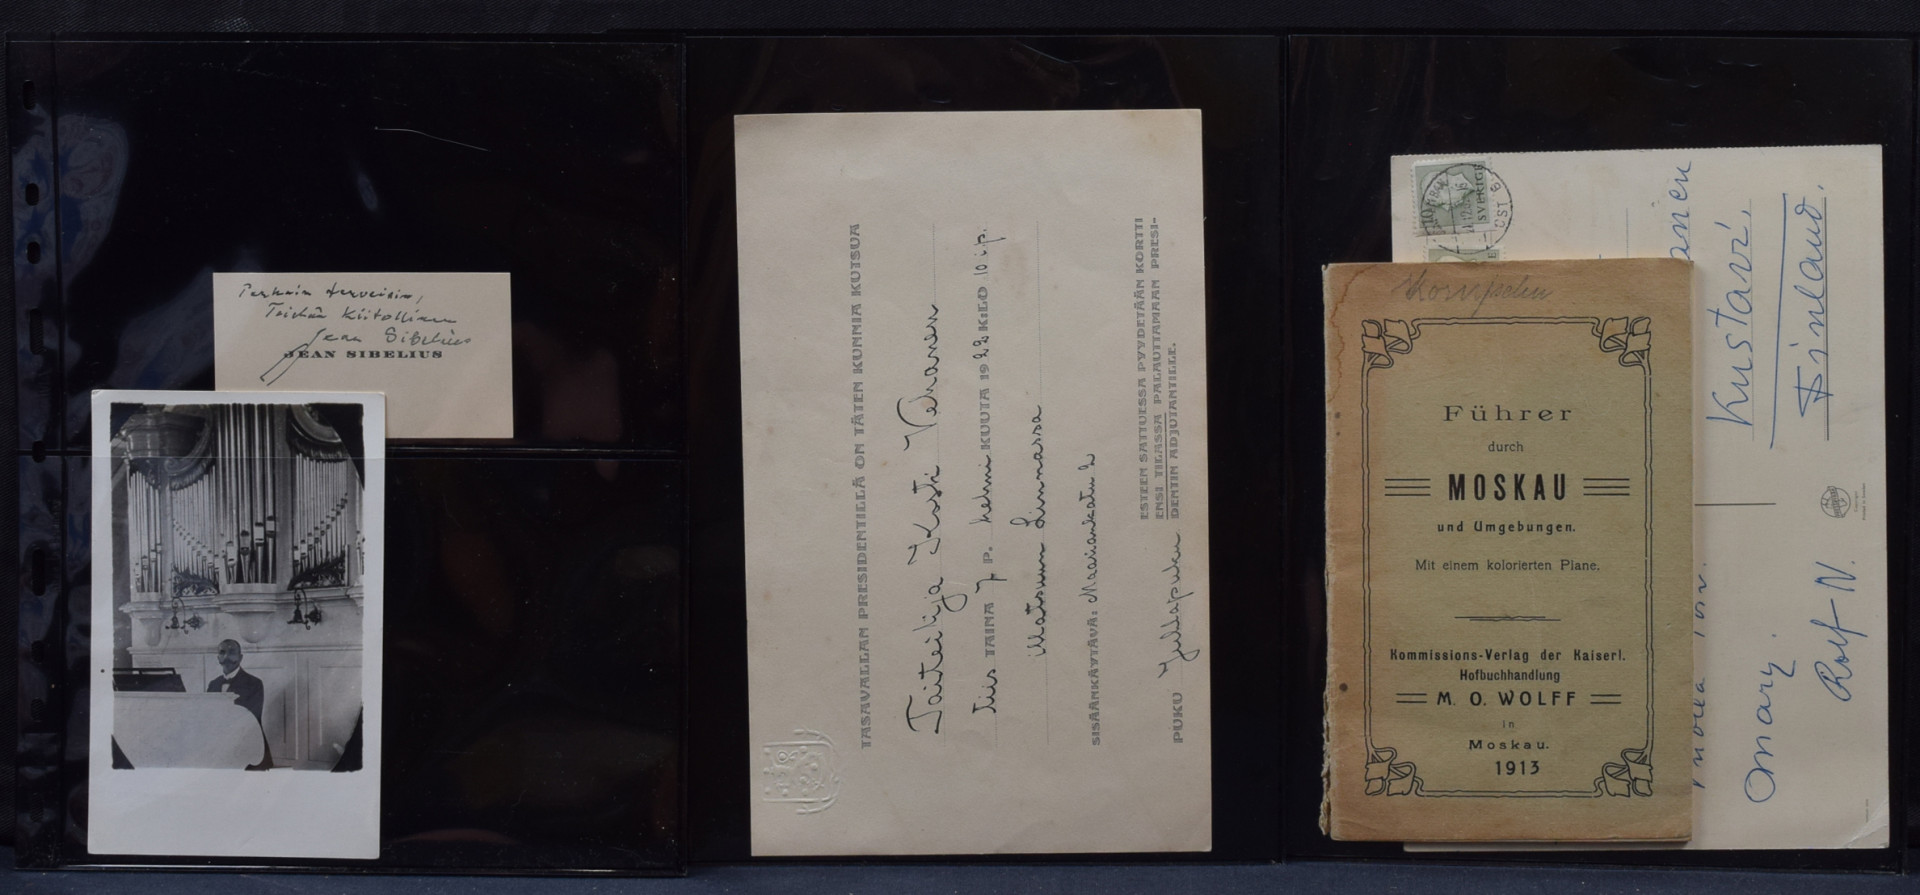 JEAN SIBELIUS
Jean Sibelius
TASAVALLAN PRESIDENTILLÄ ON TÄTEN KUNNIA KUTSUA
Taiteilija Kosti Vehanen
tiis TAINA 7 P. helmi KUUTA 1922 K:LO 10 i.p.
Matsun Linnassa
SISÄÄNKÄYTÄVÄ: Maariankatu 2
PUKU Juhlapuku
ESTEEN SATTUESSA PYYDETÄÄN KORTTI
ENSI TILASSA PALAUTTAMAAN PRESI-
DENTIN ADJUTANTILLE.
SVERIGE
Kustavi,
Finland.
Omary.
Rolf-N.
Führer
durch
MOSKAU
und Umgebungen.
Mit einem kolorierten Plane.
Kommissions-Verlag der Kaiserl.
Hofbuchhandlung
M. O. WOLFF
in
Moskau.
1913